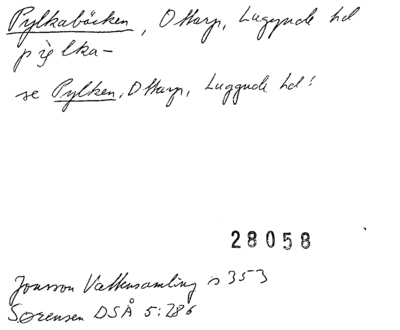 Pylkabäcken, Ottarp, Luggude hd
pylka-
se Pylken, Ottarp, Luggude hd!
28058
Jonsson Vattensamling s 353
Sørensen DSÅ 5:286